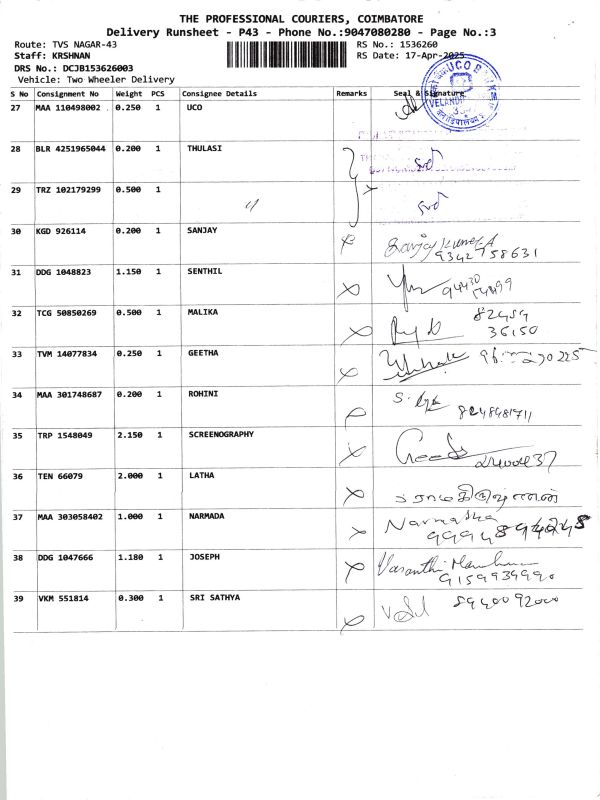 THE PROFESSIONAL COURIERS, COIMBATORE
Delivery Runsheet - P43 - Phone No.:9047080280 - Page No.:3
Route: TVS NAGAR-43 RS No.: 1536260
Staff: KRSHNAN RS Date: 17-Apr-2025
DRS No.: DCJB153626003
Vehicle: Two Wheeler Delivery
S No Consignment No Weight PCS Consignee Details Remarks Seal & Signature
27 MAA 110498002 0.250 1 UCO
28 BLR 4251965044 0.200 1 THULASI
29 TRZ 102179299 0.500 1 "
30 KGD 926114 0.200 1 SANJAY Sanjay Kumar.A
9342758631
31 DDG 1048823 1.150 1 SENTHIL
32 TCG 50850269 0.500 1 MALIKA 82489
36150
33 TVM 14077834 0.250 1 GEETHA
34 MAA 301748687 0.200 1 ROHINI
8248481711
35 TRP 1548049 2.150 1 SCREENOGRAPHY
36 TEN 66079 2.000 1 LATHA
37 MAA 303058402 1.000 1 NARMADA Narmadha
38 DDG 1047666 1.180 1 JOSEPH Vasanthi
9159939990
39 VKM 551814 0.300 1 SRI SATHYA 8940092000